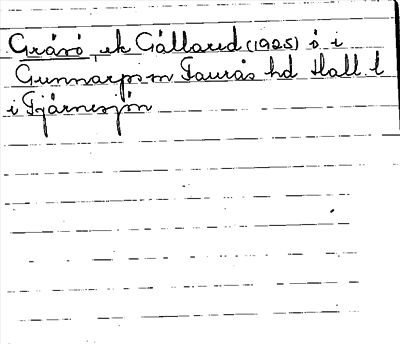 Gråsö, ek Gällared (1925) ö i
Gunnarps m Faurås hd Hall. l
i Fjärnesjön